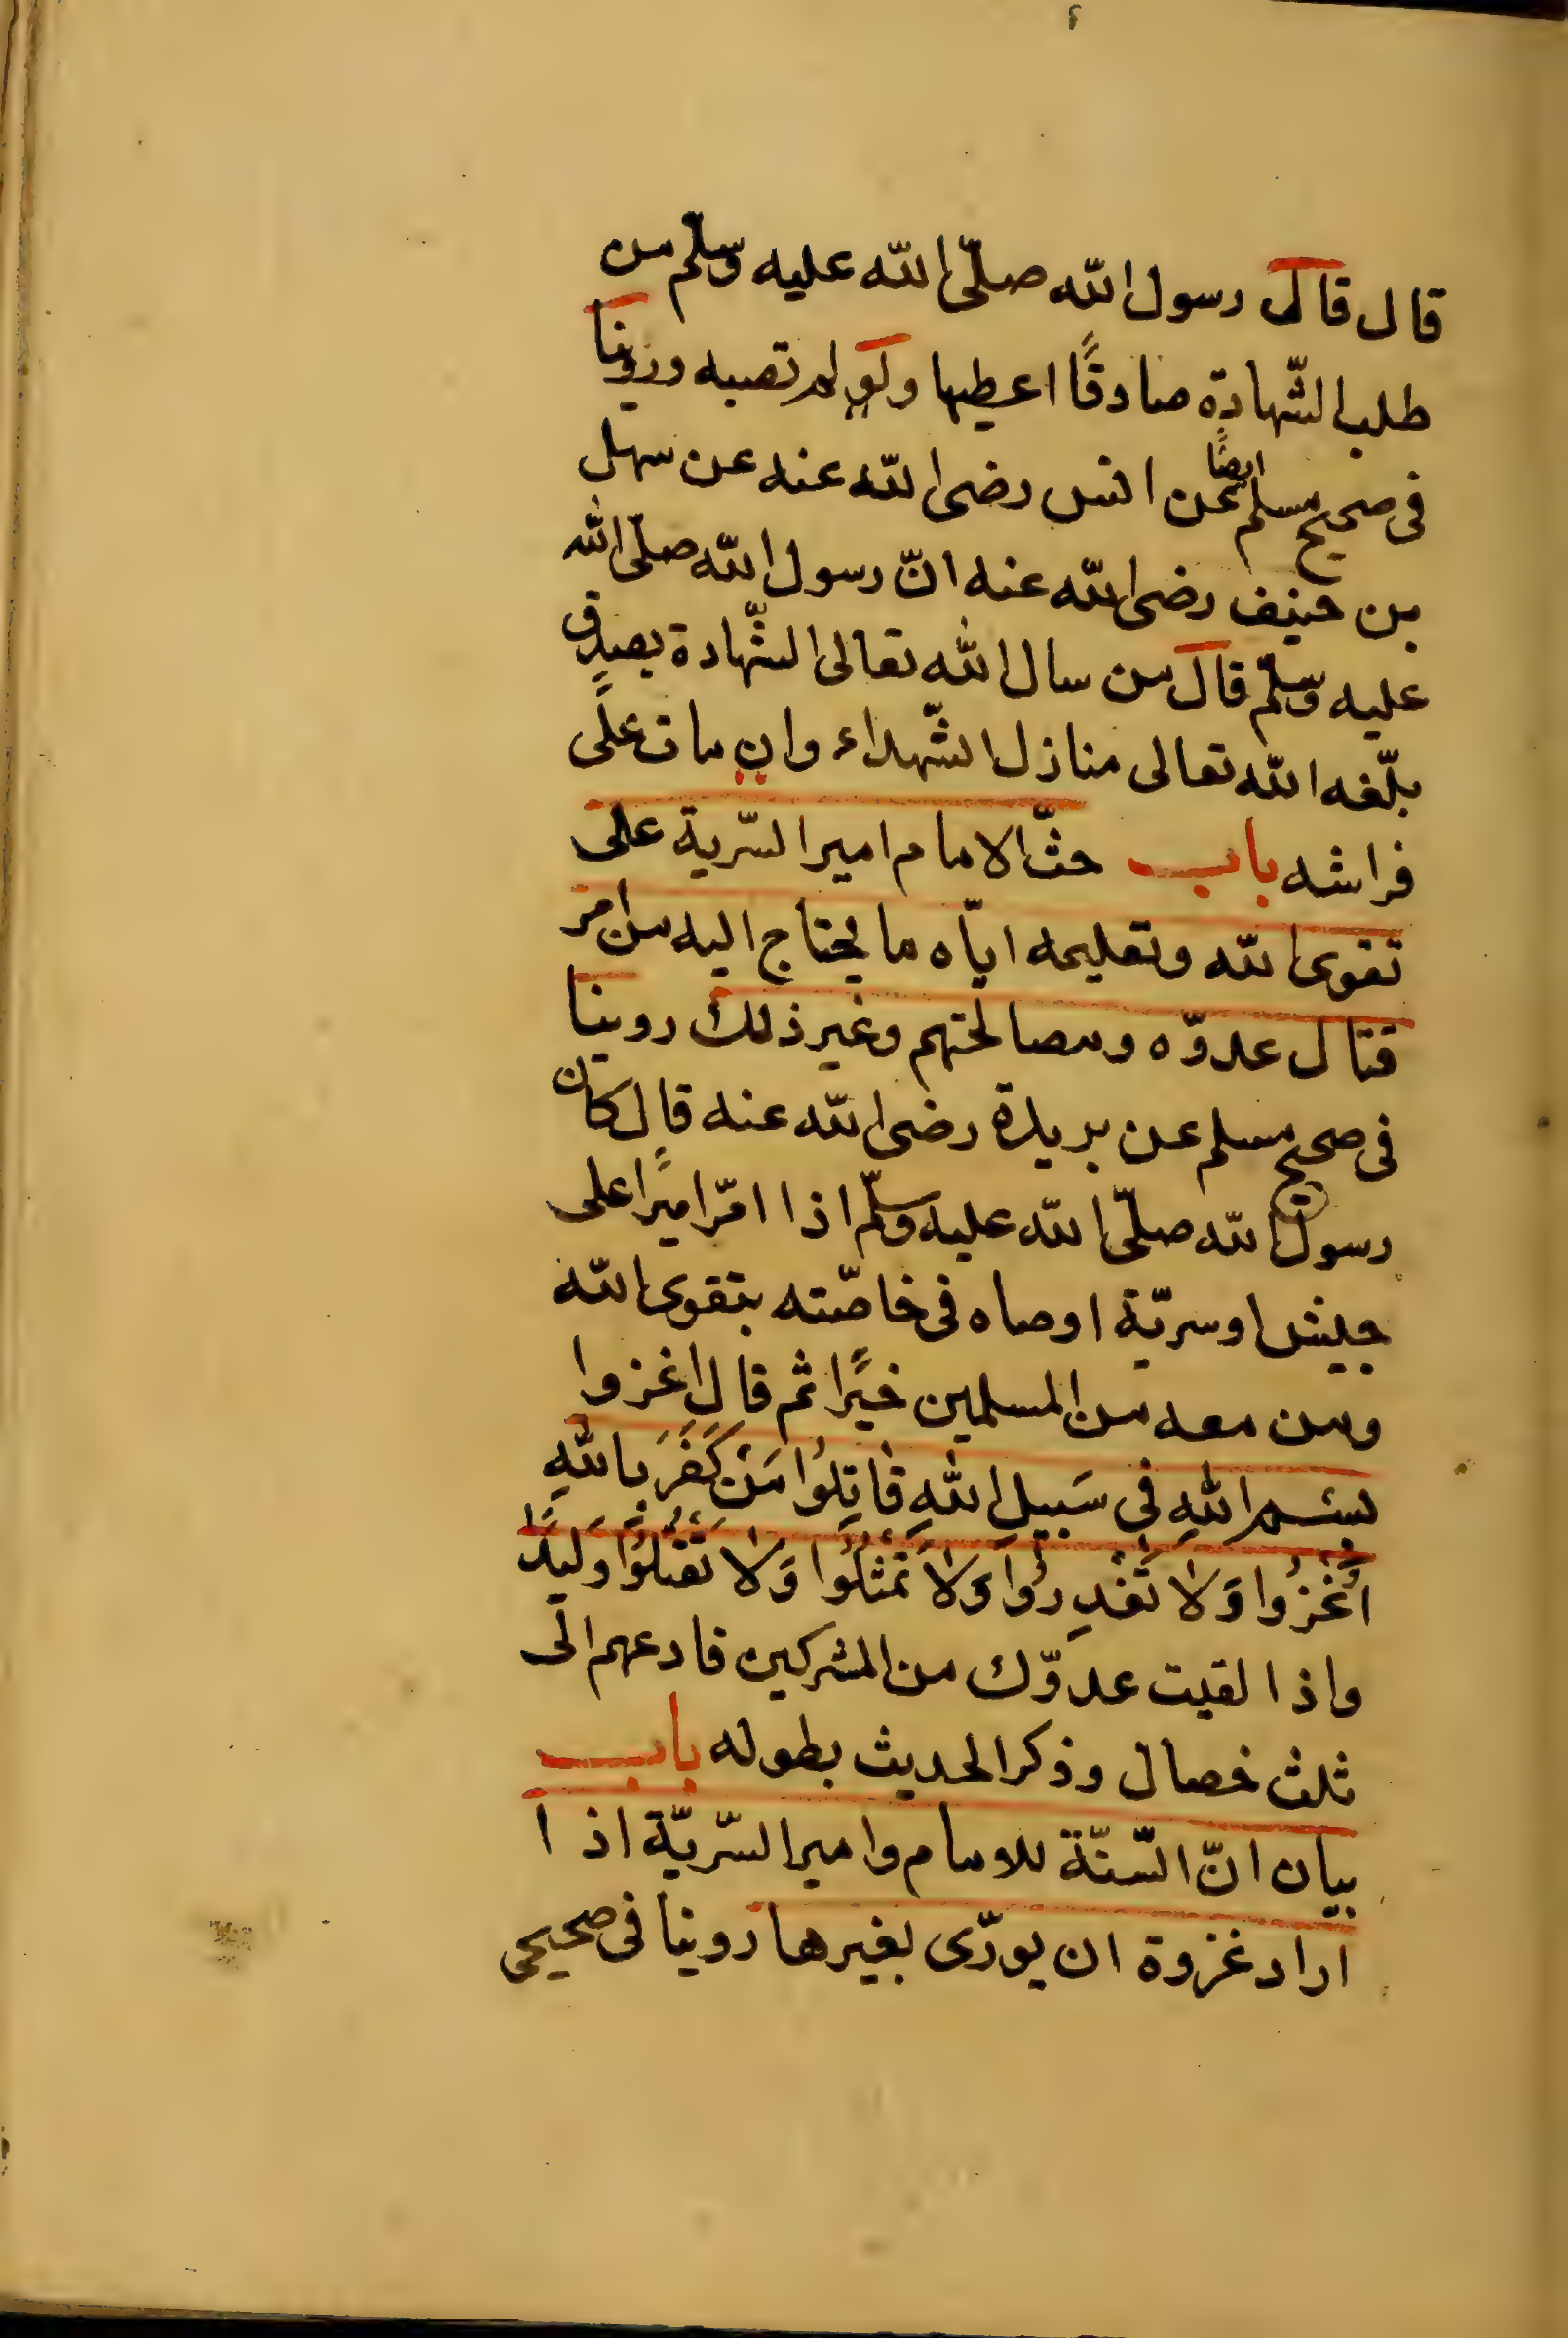 قال قال رسول الله صلّى الله عليه وسلّم من
طلب الشّهادة صادقًا اعطيها ولو لم تصبه وروينا
فى صحيح مسلم ايضًا عن انس رضى الله عنه عن سهل
بن حنيف رضى الله عنه انّ رسول الله صلّى الله
عليه وسلّم قال من سال الله تعالى الشّهادة بصدق
بلّغه الله تعالى منازل الشّهداء وان مات على
فراشه باب حثّ الامام امير السّرية على
تقوى الله وتعليمه ايّاه ما يحتاج اليه من امر
قتال عدوّه ومصالحتهم وغير ذلك روينا
فى صحيح مسلم عن بريدة رضى الله عنه قال كان
رسول الله صلّى الله عليه وسلّم اذا امّر اميرًا على
جيش او سريّة اوصاه فى خاصّته بتقوى الله
ومن معه من المسلمين خيرًا ثم قال اغزوا
بسم اللهِ فِى سَبيلِ اللهِ قَاتِلُوا مَنْ كَفَرَ بِاللهِ
اُغْزُوا وَلَا تَغْدِرُوا وَلَا تَمْثُلُوا وَلَا تَقْتُلُوا وَلِيدًا
واذا لقيت عدوّك من المشركين فادعهم الى
ثلث خصال وذكر الحديث بطوله باب
بيان انّ السّنّة للامام وامير السّريّة اذا
اراد غزوة ان يورّى بغيرها روينا فى صحيحى